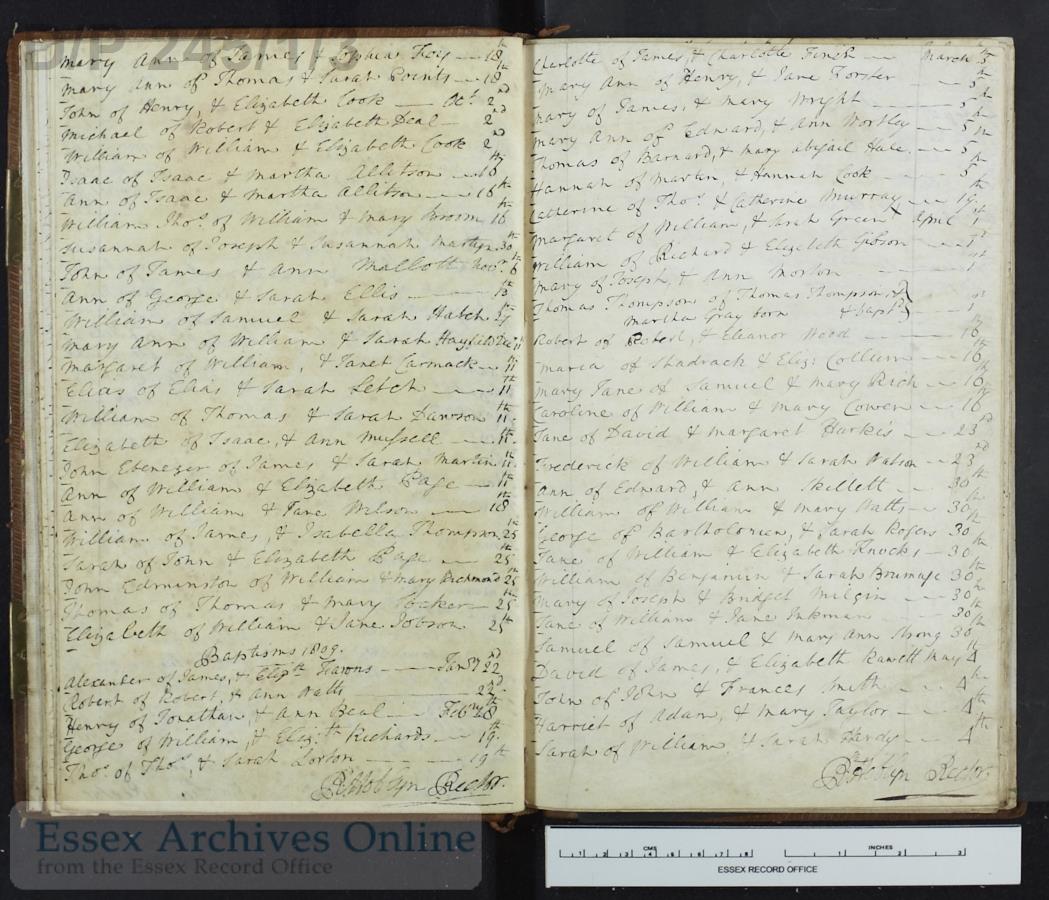 D/P 243/1/3
Mary Ann of James & Sophia Foy 18th
Mary Ann of Thomas & Sarah Points 18th
John of Henry, & Elizabeth Cook Oct. 2nd
Michael of Robert & Elizabeth Deal 2nd
William of William & Elizabeth Cook 2nd
Isaac of Isaac & Martha Allitson 16th
Ann of Isaac & Martha Allitson 16th
William Thos. of William & Mary 16th
Susannah of Joseph & Susannah Martyn 30th
John of James & Ann Mallott Novr. 6th
Ann of George & Sarah Ellis 13th
William of Samuel & Sarah Hatch 27
Mary Ann of William & Sarah Hayfield Decr. 11
Margaret of William, & Janet Carmack 11
Elias of Elias & Sarah Letch 11th
William of Thomas & Sarah Dawson 11th
Elizabeth of Isaac, & Ann Mussell 11th
John Ebenezer of James, & Sarah Martin 11th
Ann of William & Elizabeth Page 11th
Ann of William & Jane Wilson 18th
William of James, & Isabella Thompson 25th
Sarah of John & Elizabeth Page 25th
John Edminston of William & Mary Richmond 25th
Thomas of Thomas & Mary 25th
Elizabeth of William & Jane Jobson 25th
Baptisms 1809.
Alexander of James, & Elizth. Jany. 22nd
Robert of Robert, & Ann Watts 22nd
Henry of Jonathan & Ann Beal Feby.
George of William, & Elizth. Richards 19th
Thos. of Thos., & Sarah Lorton 19th
R. Hoblyn Rector.
Charlotte of James, & Charlotte Finch March 5th
Mary Ann of Henry, & Jane Forster 5th
Mary of James, & Mary Wright 5th
Mary Ann of Edward, & Ann Wortley 5th
Thomas of Barnard, & Mary Abigail Hale 5th
Hannah of Martin, & Hannah Cook 5th
Catherine of Thos. & Catherine Murray 19th
Margaret of William, & Sarah Green April 1st
William of Richard & Elizabeth Gibson 1st
Mary of Joseph, & Ann Morton 1st
Thomas Thompson of Thomas Thompson, &
Martha Gray born & bapt. 1st
Robert of Robert, & Eleanor Wood 16th
Maria of Shadrach & Eliz: Collum 16th
Mary Jane of Samuel & Mary Rich 16th
Caroline of William & Mary Cowen 16th
Jane of David & Margaret Harkis 23rd
Frederick of William & Sarah Watson 23rd
Ann of Edward, & Ann Skillett 30th
William of William & Mary Watts 30th
George of Bartholomew, & Sarah Rogers 30th
Jane of William & Elizabeth Knocks 30th
William of Benjamin & Sarah Brumage 30th
Mary of Joseph & Bridget Milgin 30th
Jane of William & Jane Inkman 30th
Samuel of Samuel & Mary Ann Strong 30th
David of James, & Elizabeth Rawett May 4th
John of John & Frances Smith 4th
Harriet of Adam, & Mary Taylor 4th
Sarah of William, & Sarah Hardy 4th
R. Hoblyn Rector
Essex Archives Online
from the Essex Record Office
CMS
1 2 3 4 5 6 7 8
INCHES
1 2 3
ESSEX RECORD OFFICE